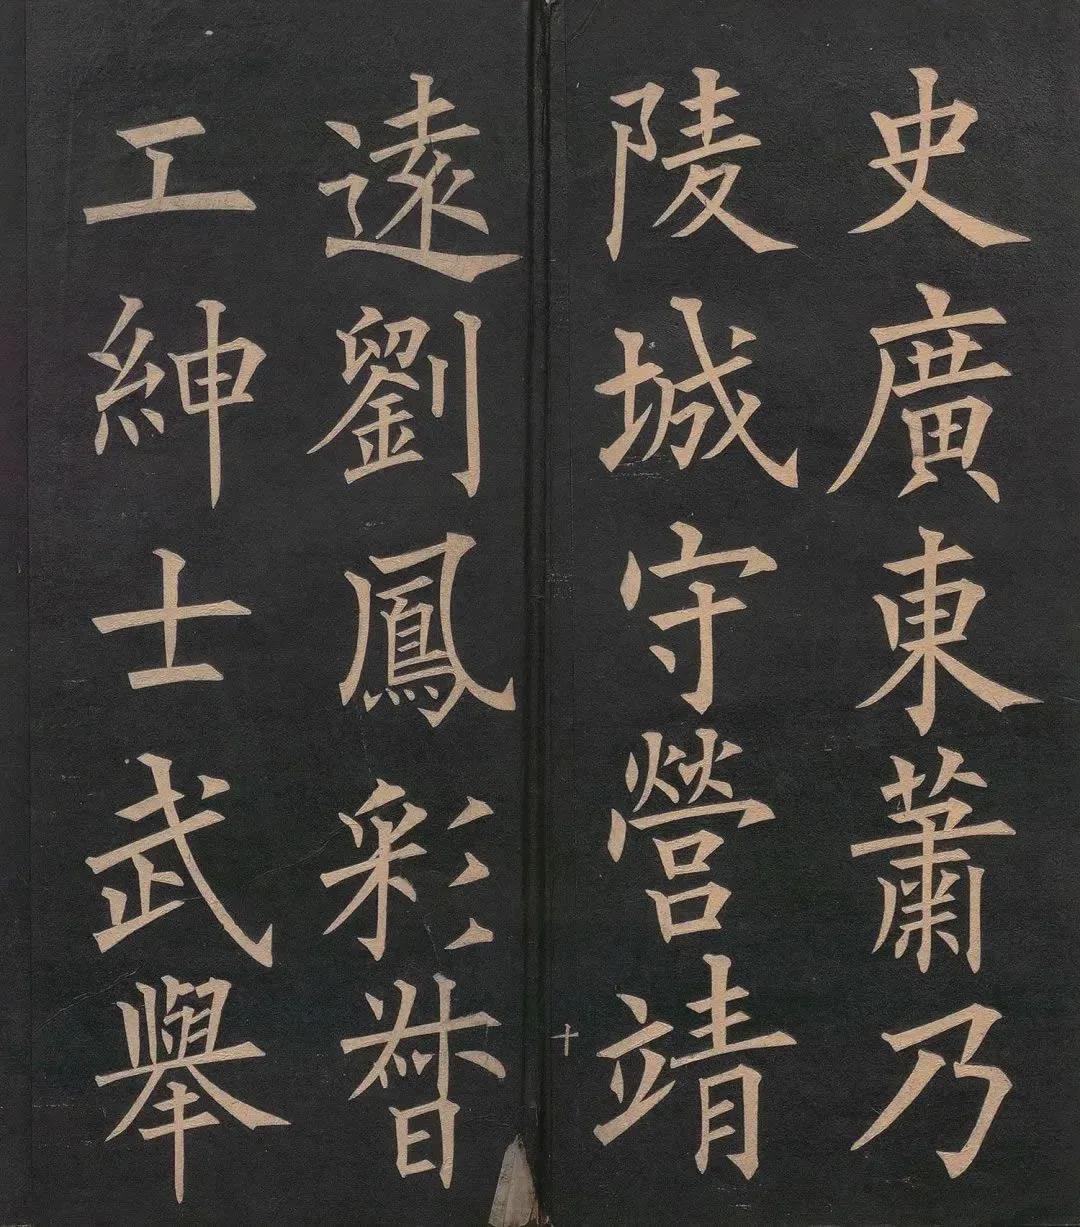 史廣東蕭乃
陵城守營靖
十
遠劉鳳彩督
工紳士武舉